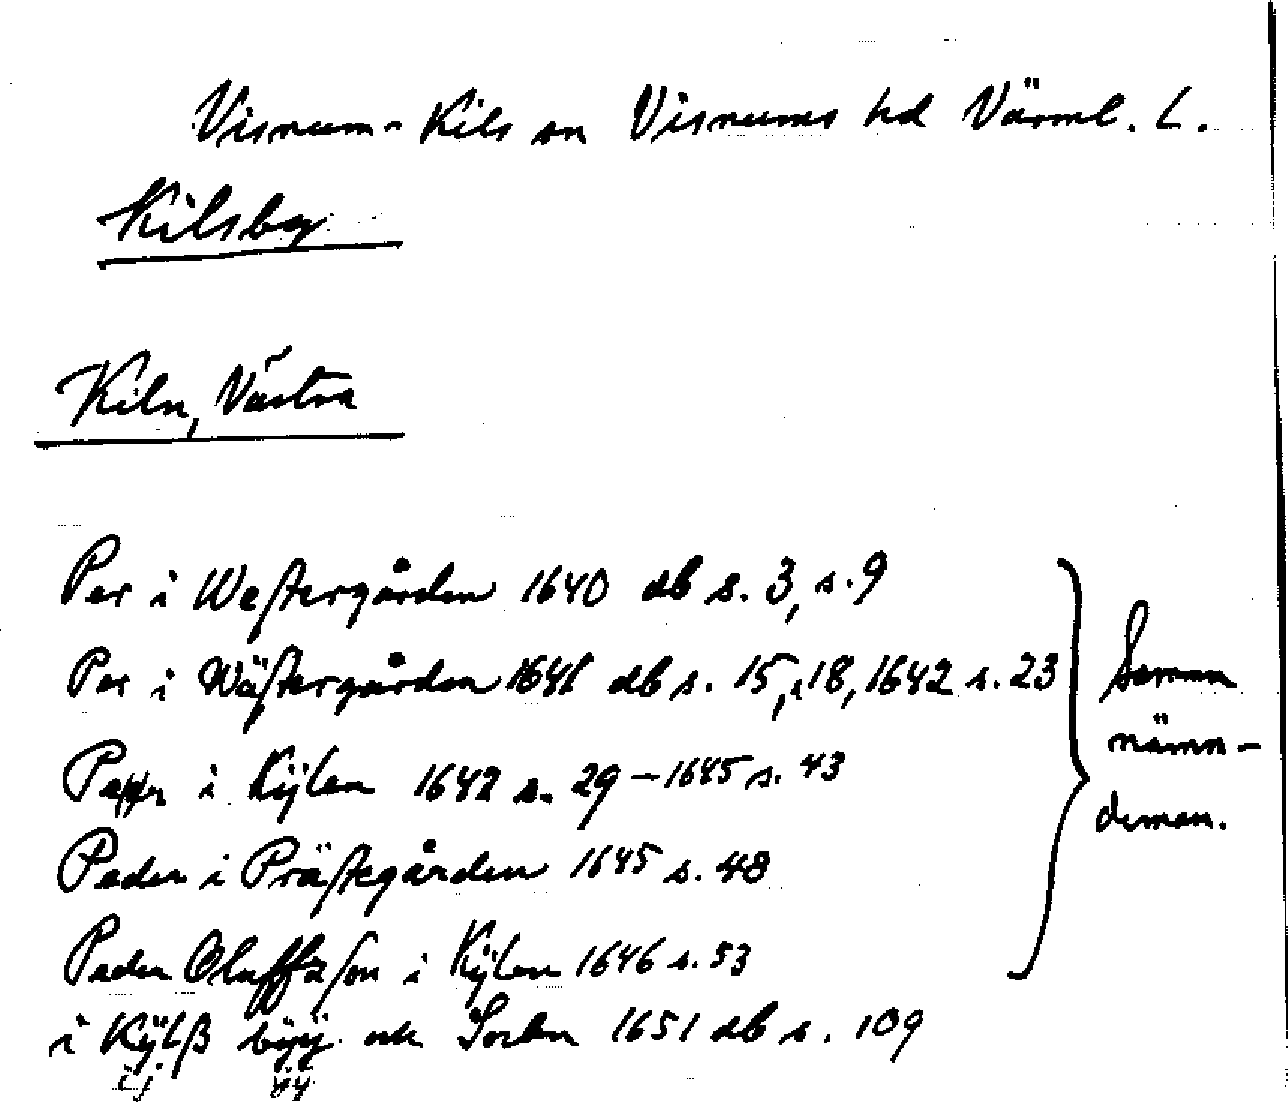 Visnum-Kils sn Visnums hd Värml. L.
Kilsby
Kiln, Västra
Per i Westergården 1640 db s. 3, s. 9
Per i Wästergården 1641 db s. 15, s 18, 1642 s. 23
Samma
i Kÿlen 1642 s. 29 - 1645 s. 43
nämn-
deman.
Peder i Prästegården 1645 s. 48
Peder Oluffzson i Kÿlen 1646 s. 53
i Kÿlß bÿÿ och 1651 db s. 109
ij ÿÿ